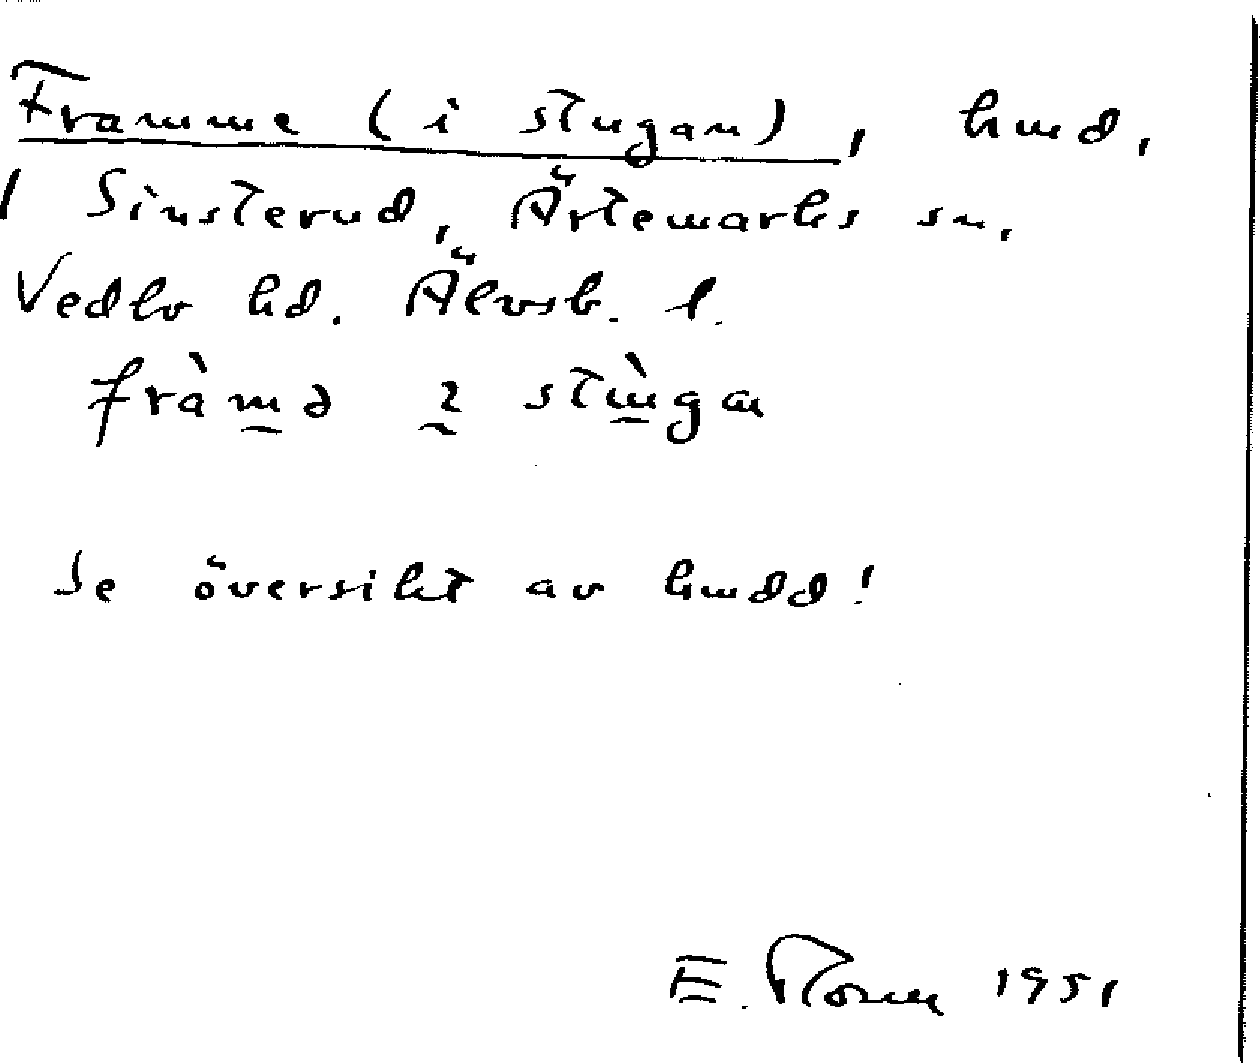 Framme (i stugan), hmd,
/ Sinsterud, Ärtemarks sn,
Vedbo hd. Älvsb. l.
fràm̲ə ɪ̰ stù̲gan
Se översikt av hmdd!
E. 1951